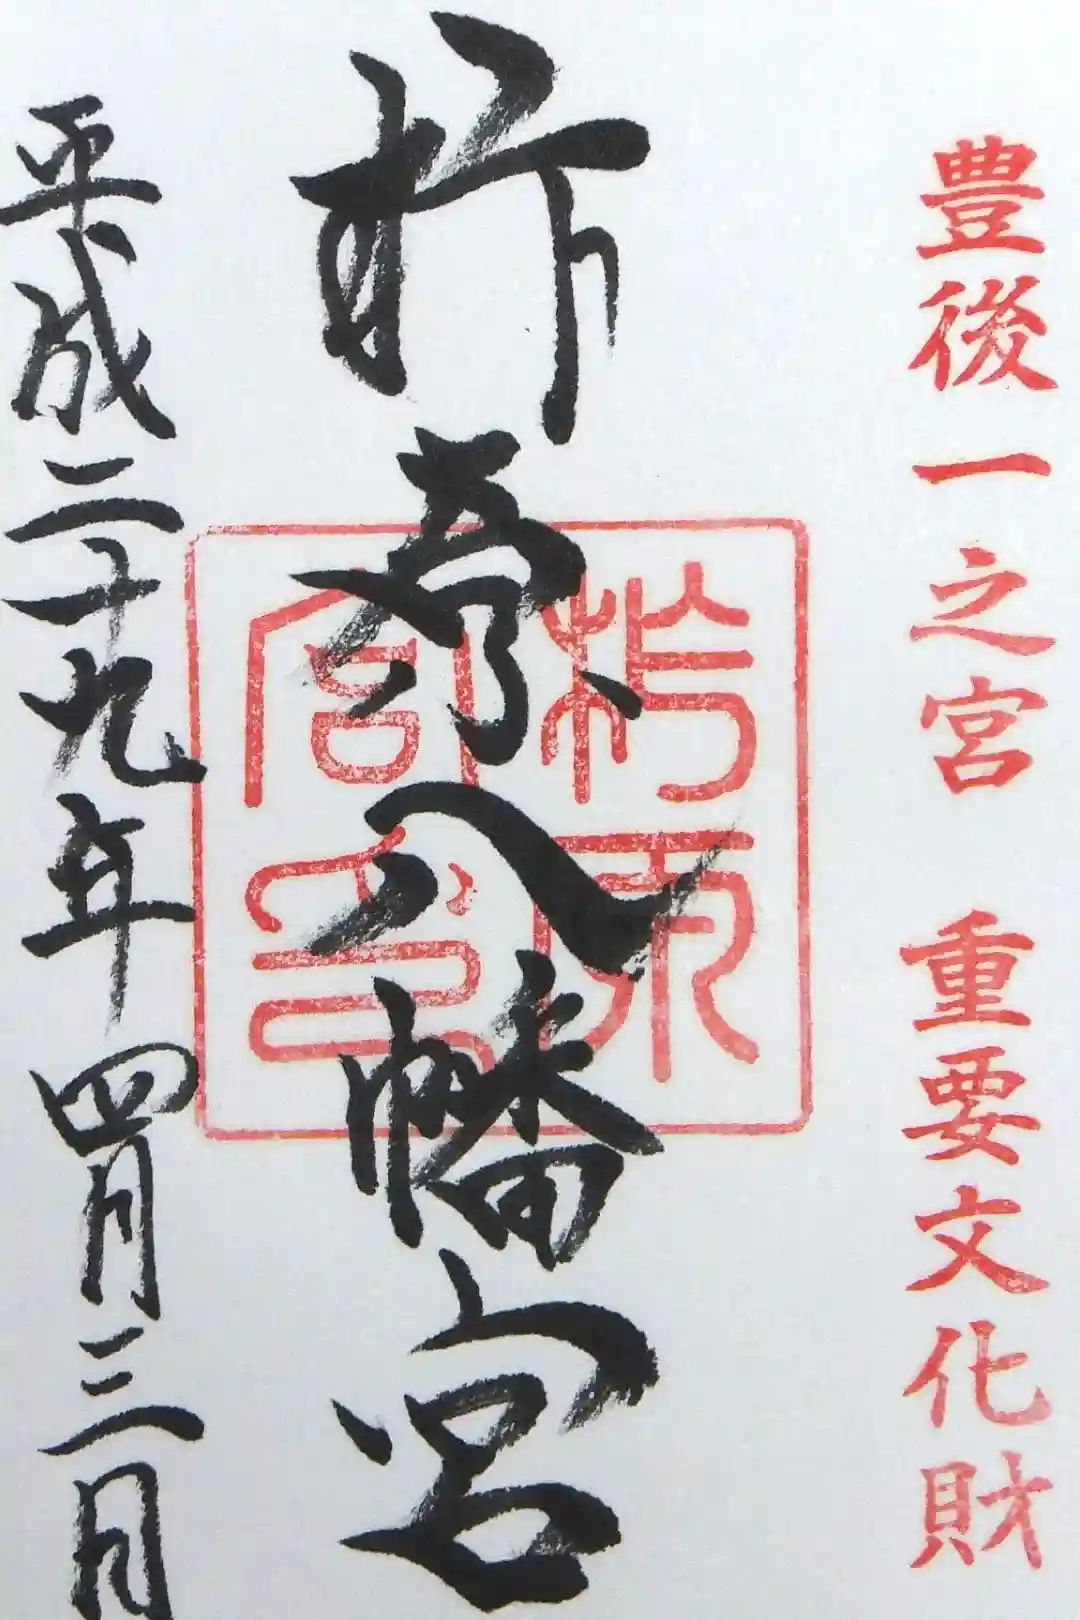 豊後一之宮 重要文化財
柞原八幡宮
平成二十九年四月三日